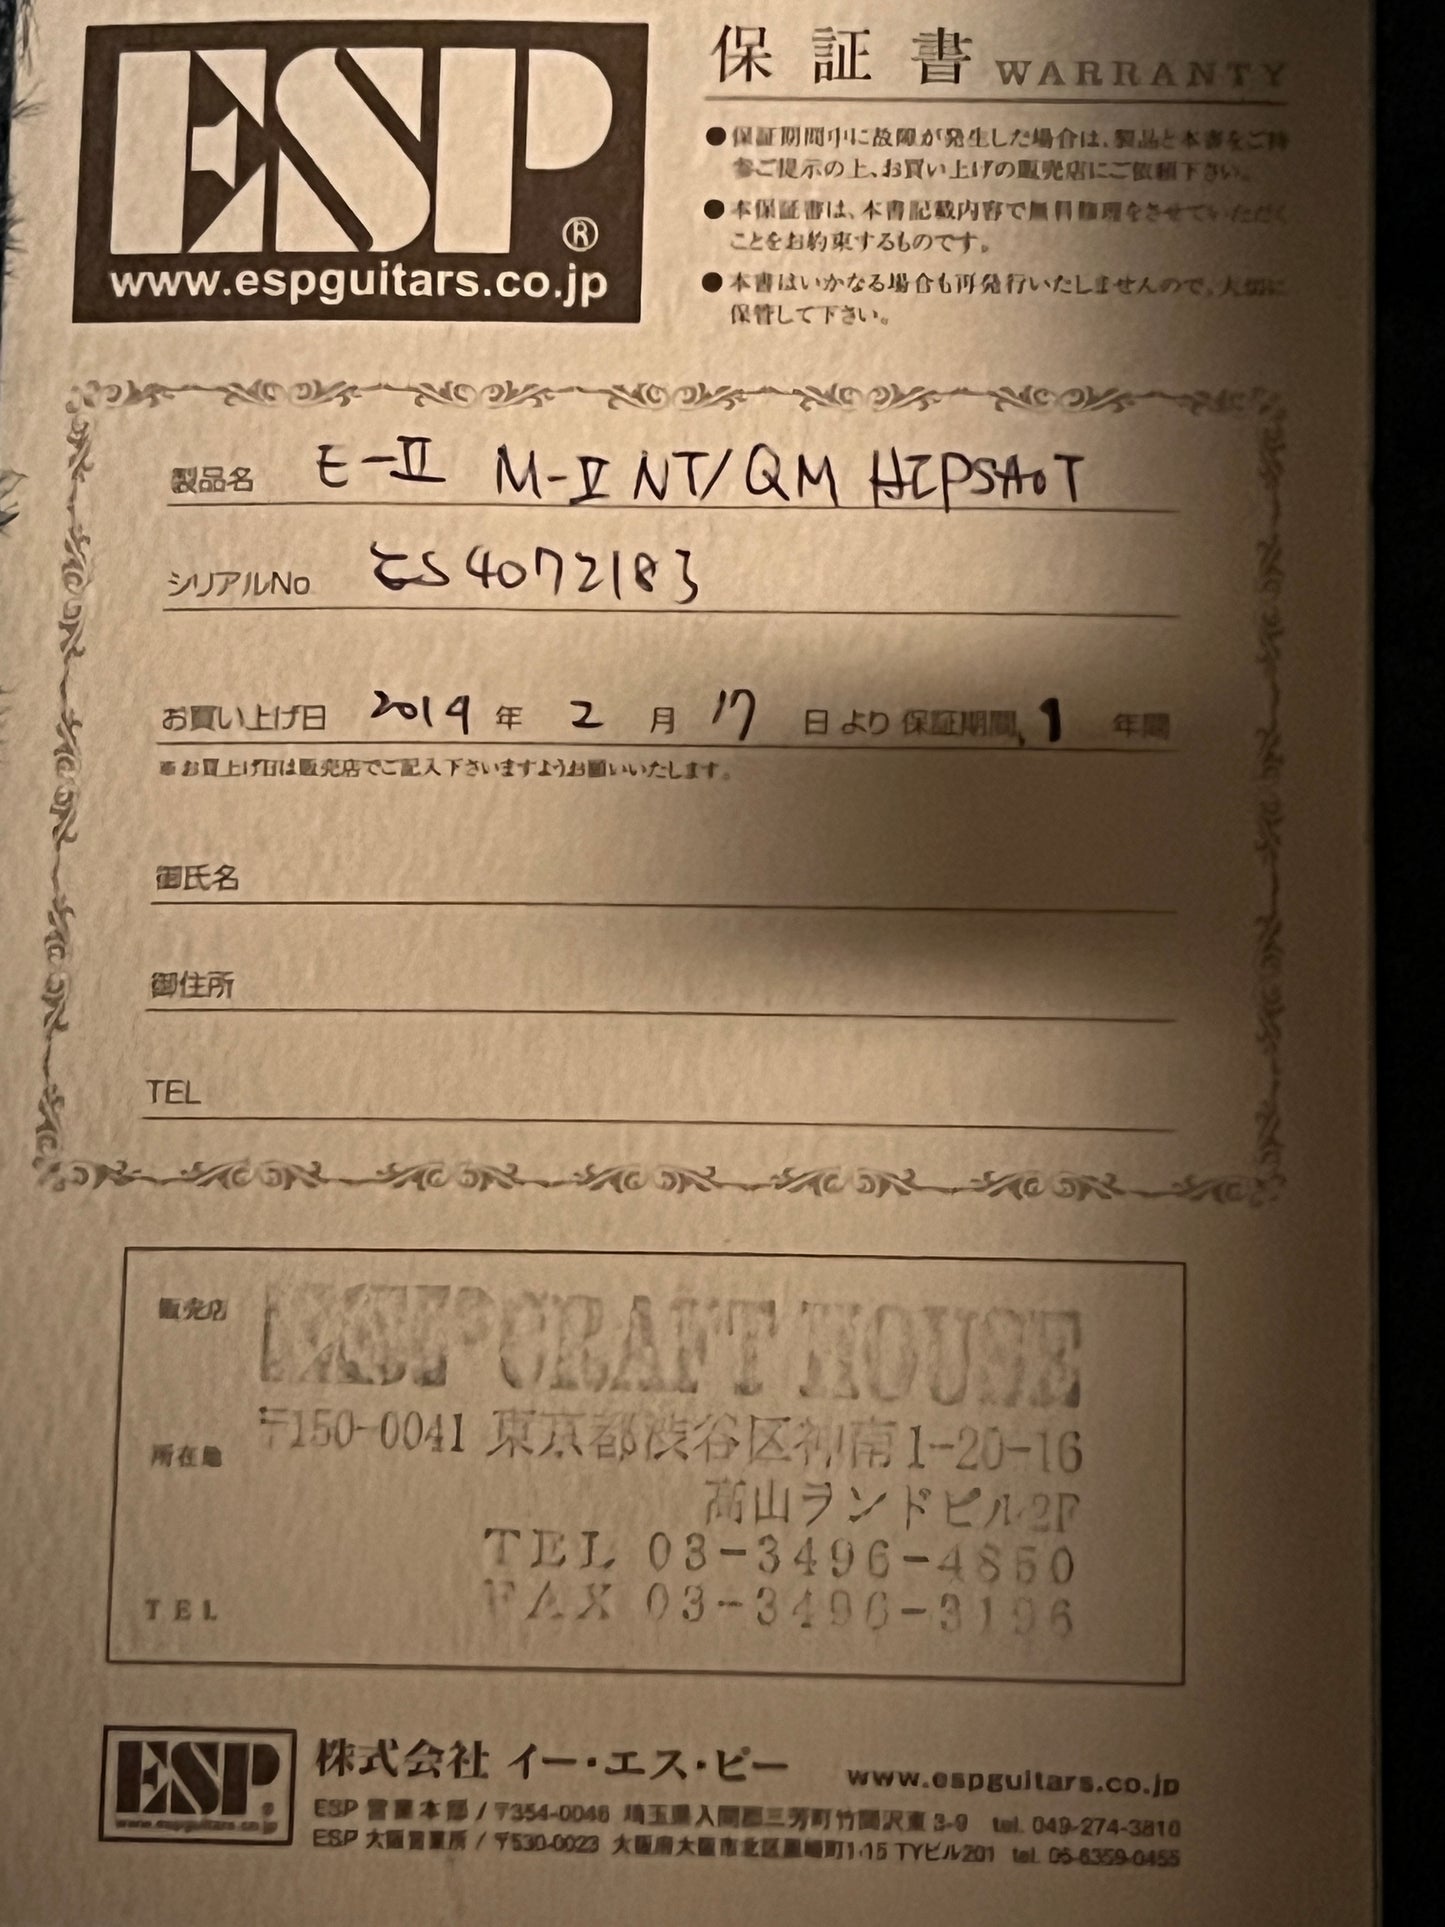 ESP®
www.espguitars.co.jp
保証書 WARRANTY
●保証期間中に故障が発生した場合は、製品と本書をご持
参ご提示の上、お買い上げの販売店にご依頼下さい。
●本保証書は、本書記載内容で無料修理をさせていただく
ことをお約束するものです。
●本書はいかなる場合も再発行いたしませんので、大切に
保管して下さい。
製品名 E-II M-II NT/QM HIPSHOT
シリアルNo ES4072183
お買い上げ日 2019年 2月 17日より保証期間 1年間
※お買上げ日は販売店でご記入下さいますようお願いいたします。
御氏名
御住所
TEL
販売店 ESP CRAFT HOUSE
所在地 〒150-0041 東京都渋谷区神南1-20-16
高山ランドビル2F
TEL 03-3496-4850
TEL FAX 03-3496-3196
ESP. 株式会社 イー・エス・ピー www.espguitars.co.jp
www.espguitars.co.jp
ESP 営業本部 / 〒354-0046 埼玉県入間郡三芳町竹間沢東3-9 tel. 049-274-3810
ESP 大阪営業所 / 〒530-0023 大阪府大阪市北区黒崎町1-15 TYビル201 tel. 06-6359-0455